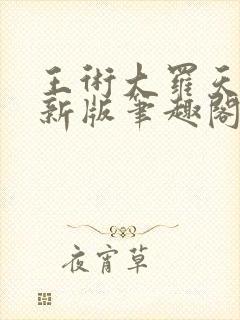 王術大羅天
新版筆趣閣
夜宵草